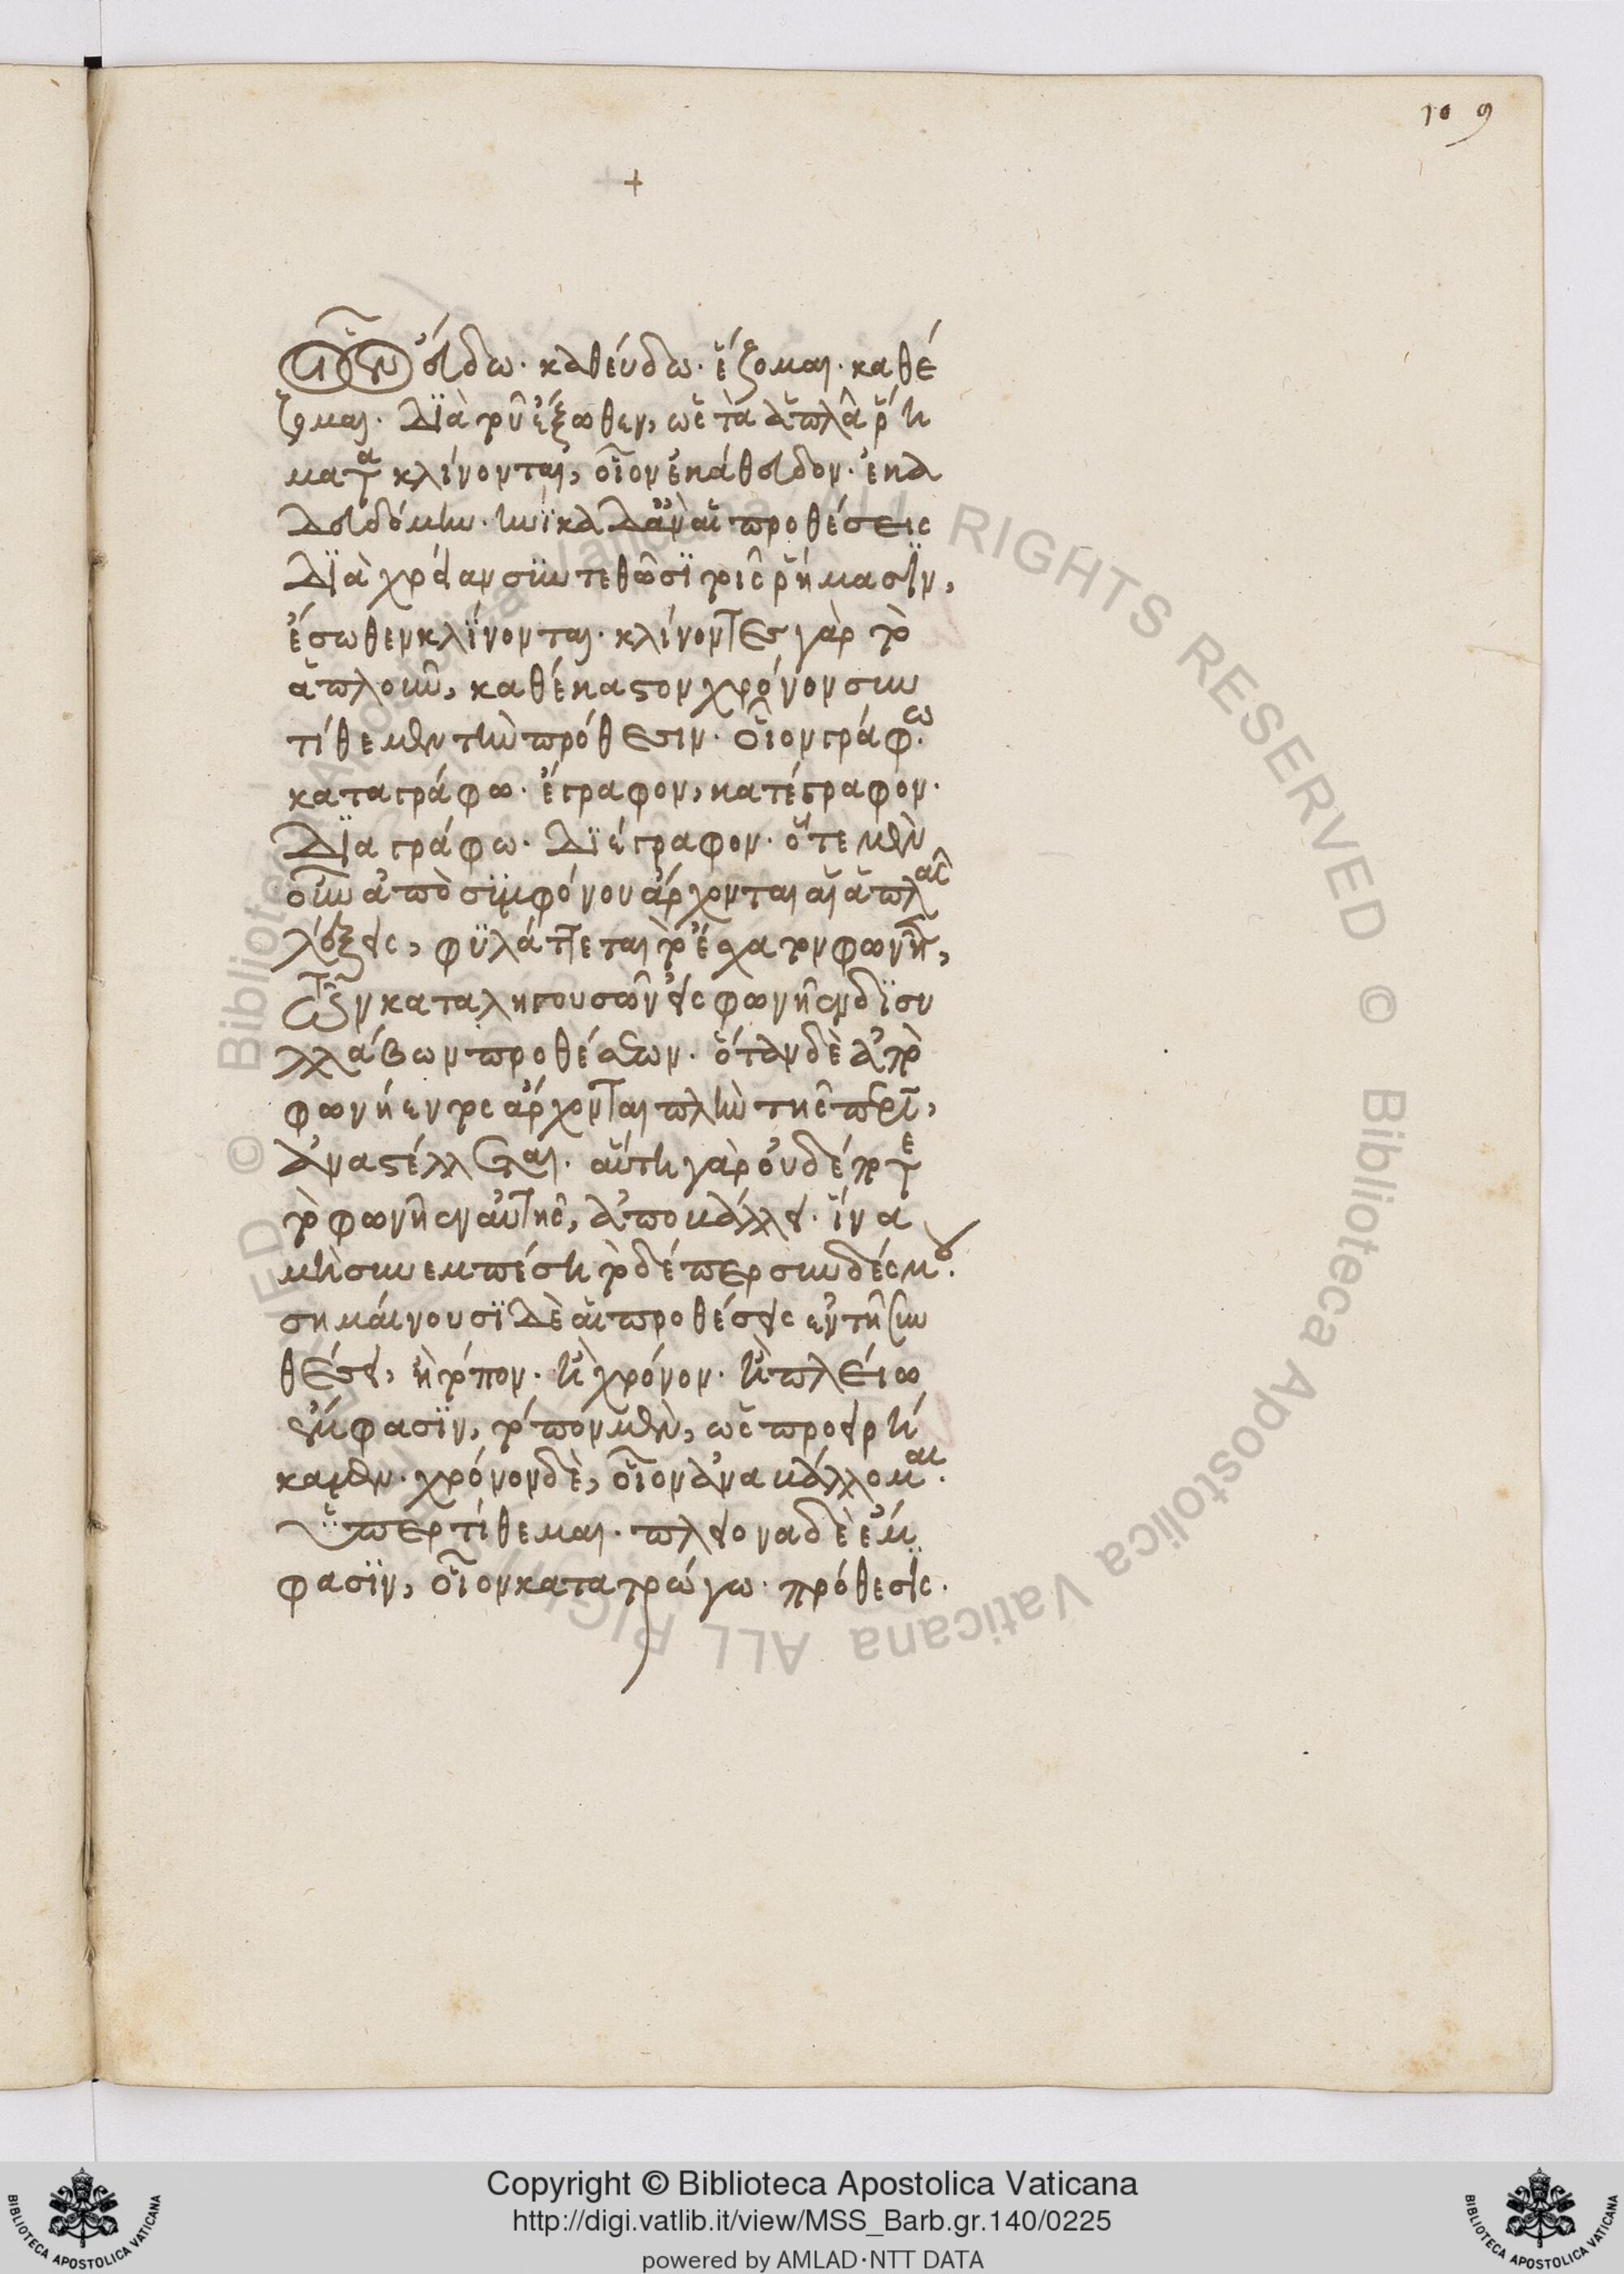 109
+
οἷον εὕδω· καθεύδω· ἕζομαι· καθέ
ζομαι· Διὰ τοῦ ἔξωθεν, ὡς τὰ ἁπλᾶ ῥή
ματα κλίνονται, οἷον ἐκάθευδον· ἐκα
θευδόμην· ἡνίκα δ' ἂν αἱ προθέσεις
Διὰ χρείαν συντεθῶσι τοῖς ῥήμασιν,
ἔσωθεν κλίνονται· κλίνοντες γὰρ τὸ
ἁπλοῦν, καθ' ἕκαστον χρόνον συν
τίθεμεν τὴν πρόθεσιν· οἷον γράφω·
καταγράφω· ἔγραφον, κατέγραφον·
Διαγράφω· Διέγραφον· ὅτε μὲν
οὖν ἀπὸ συμφώνου ἄρχονται αἱ ἁπλαῖ
λέξεις, φυλάττεται τὸ ἔσχατον φωνῆεν,
τῶν καταληγουσῶν εἰς φωνῆεν δισυ
λλάβων προθέσεων· ὅταν δὲ ἀπὸ
φωνήεντος ἄρχονται πλὴν τῆς περὶ,
ἀναστέλλεται· αὕτη γὰρ οὐδέποτε
τὸ φωνῆεν αὐτῆς, ἀποβάλλει· ἵνα
μὴ συνεμπέσῃ τὸ δέπερ συνδέσμω·
σημαίνουσι δὲ αἱ προθέσεις ἐν τῇ συν
θέσει, ἢ τόπον· ἢ χρόνον· ἢ πλείω
ἔμφασιν, τόπον μὲν, ὡς προειρή
καμεν· χρόνον δὲ, οἷον ἀναβάλλομαι·
ὑπερτίθεμαι· πλείονα δὲ ἔμ
φασιν, οἷον κατατρώγω· πρόθεσις·
Copyright © Biblioteca Apostolica Vaticana
http://digi.vatlib.it/view/MSS_Barb.gr.140/0225
powered by AMLAD·NTT DATA
BIBLIOTECA APOSTOLICA VATICANA
BIBLIOTECA APOSTOLICA VATICANA
© Biblioteca Apostolica Vaticana ALL RIGHTS RESERVED © Biblioteca Apostolica Vaticana ALL RIGHTS RESERVED